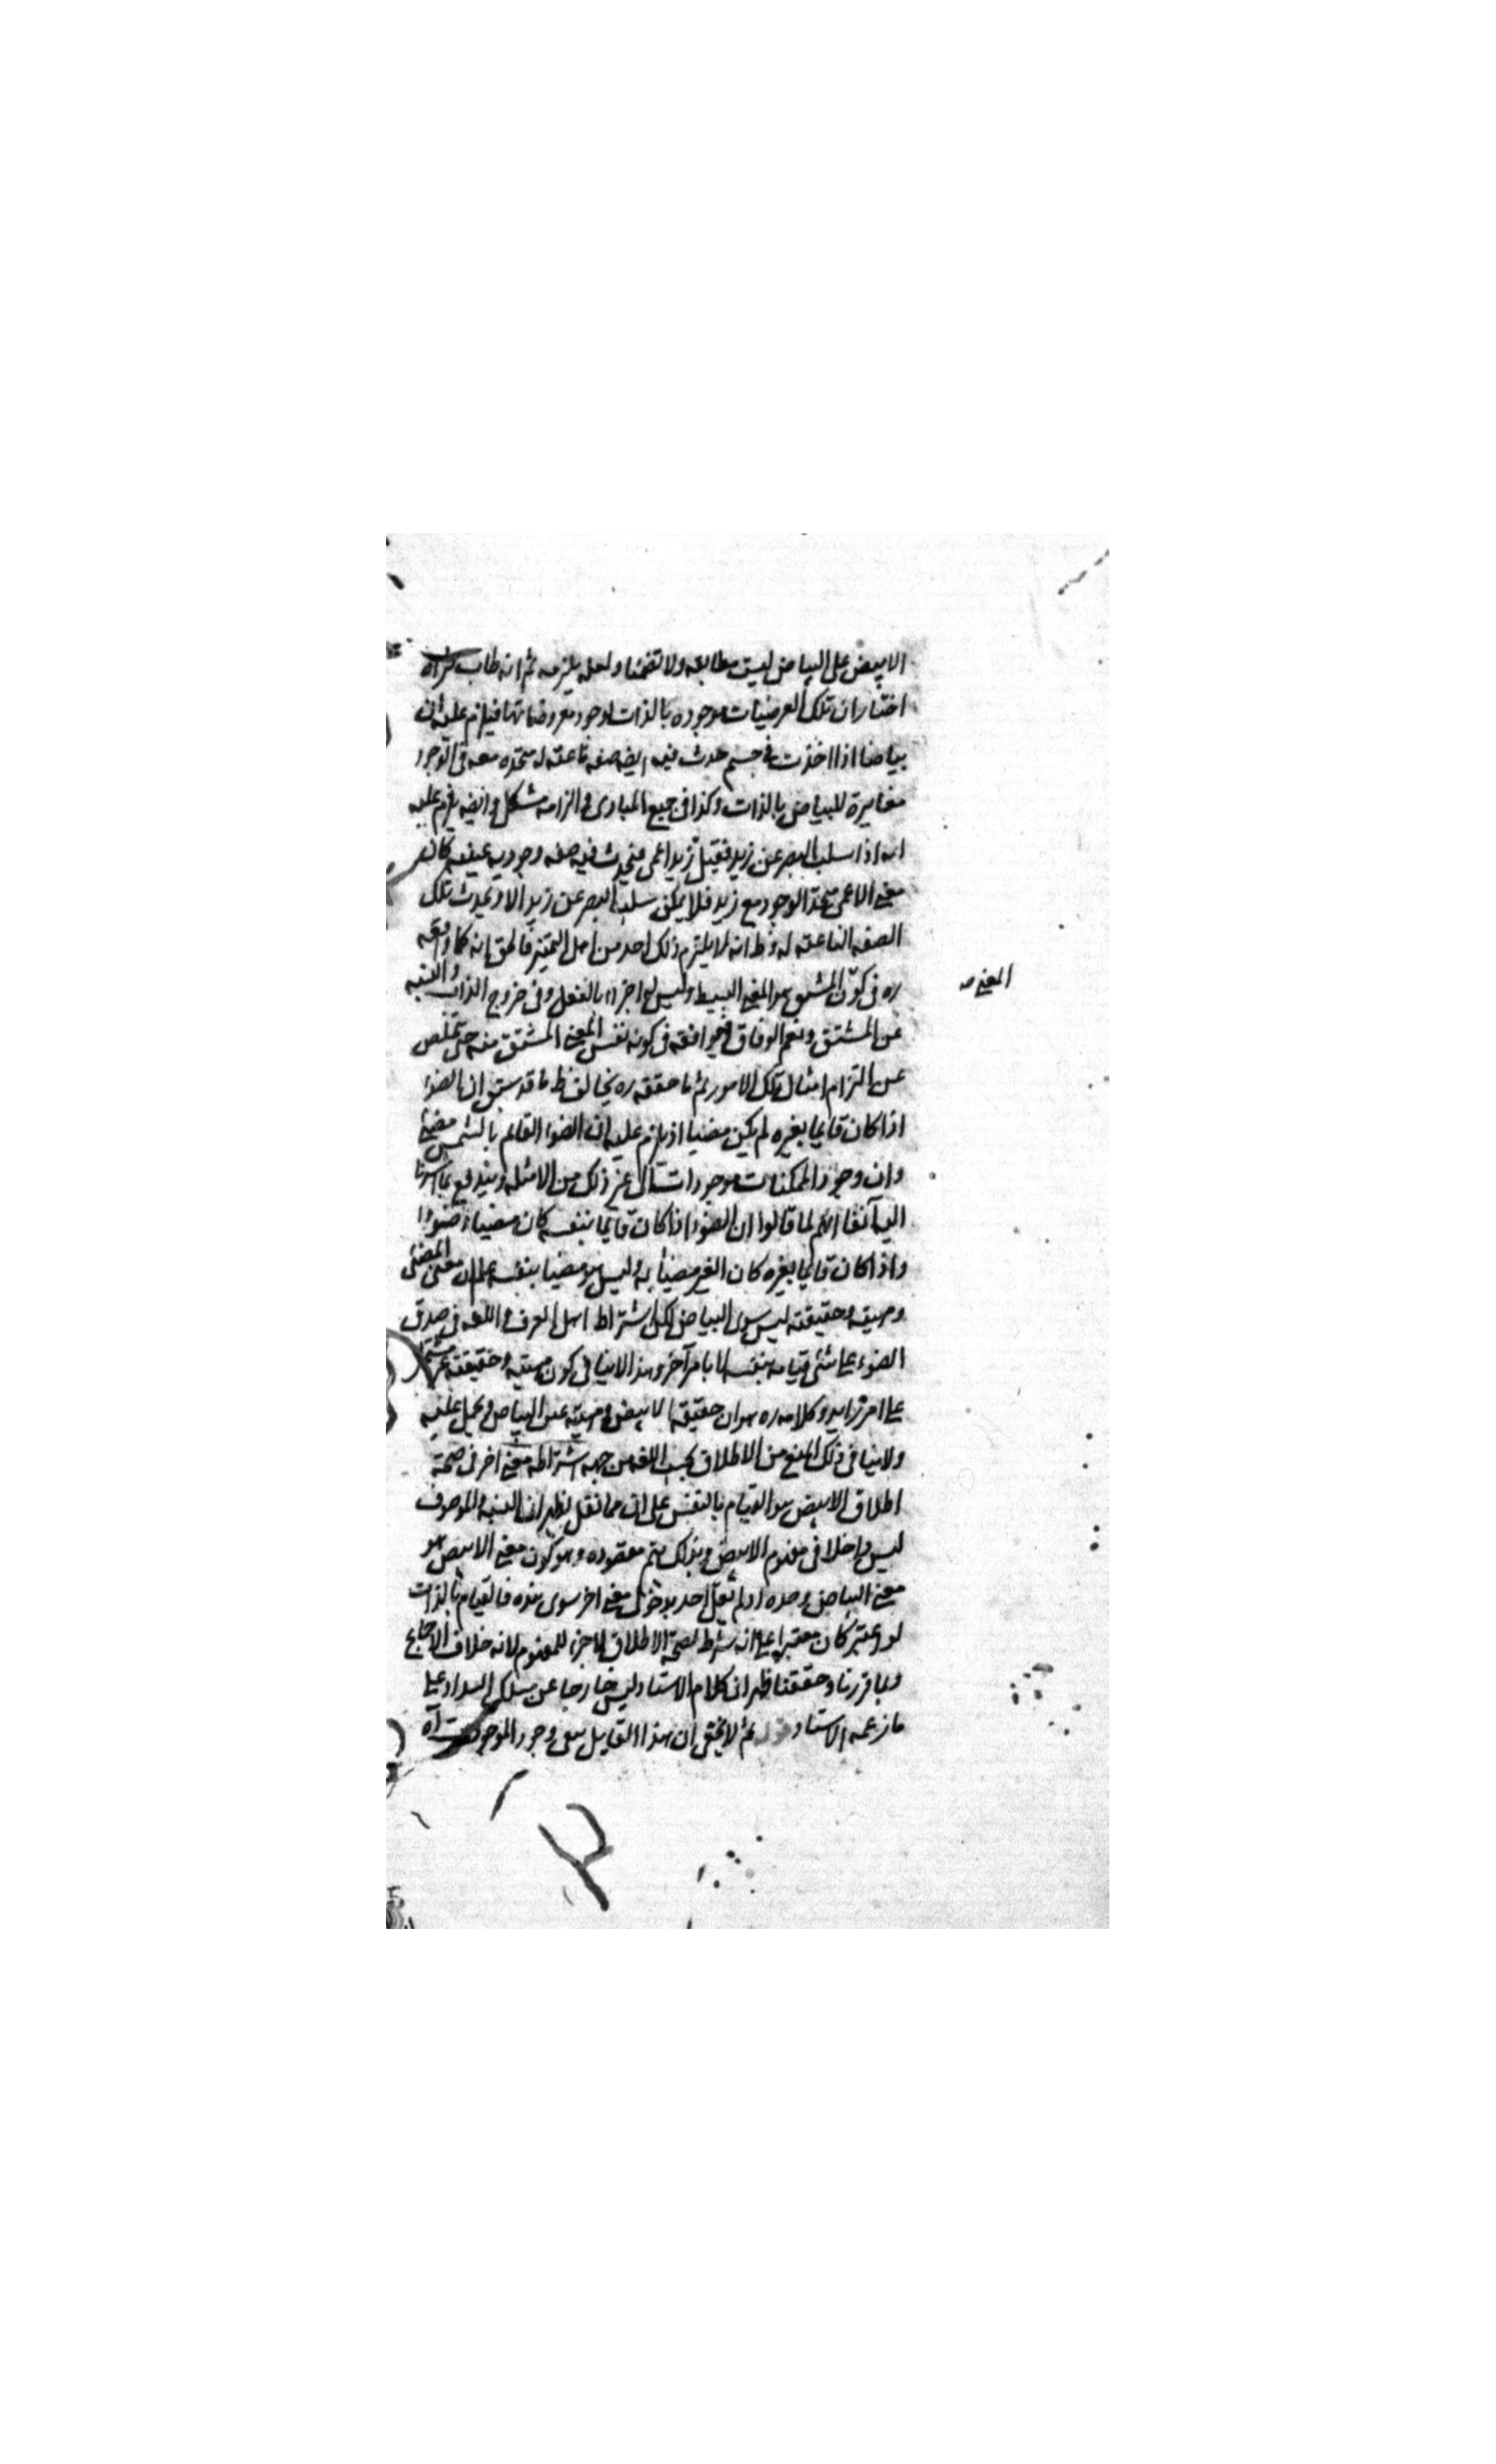 الابيض على البياض ليست مطابقه ولا تضمنا ولعله يلزمه ثم انه طاب ثراه
اختار ان تلك العرضيات موجوده بالذات لوجود معروضاتها فيلزم عليه ان
بياضا اذا اخذت في جسم حدث فيه ايضه صفه ناعته له متحده معه في الوجود
مغايرة للبياض بالذات وكذا في جميع المبادى والزامه مشكل وايضه يلزم عليه
انه اذا سلب البصر عن زيد فقيل زيد اعمى فيحدث فيه صفه وجوديه عينيه
معنى الاعمى متحد الوجود مع زيد فلا يمكن سلب البصر عن زيد الا ويحدث تلك
الصفه الناعته له وظ انه لا يلتزم ذلك احد من اهل التميز فالحق انه كما وافقه
ره في كون المشتق هو المعنى البسيط وليس له اجزاء بالفعل وفي خروج الذات والنسبه
عن المشتق ونعم الوفاق فيوافقه في كونه نفس المعنى المشتق منه حتى تخلص
عن التزام امثال تلك الامور ثم ما حققه ره يخالف ظ ما قد سبق ان الضوء
اذا كان قايما بغيره لم يكن مضيا اذ يلزم عليه ان الضوء القايم بالشمس مضيئ
وان وجود الممكنات موجودات الى غير ذلك من الامثله ويندفع بما اشرنا
اليه آنفا انهم لما قالوا ان الضوء اذا كان قايما بنفسه كان مضيئا وضوءا
واذا كان قايما بغيره كان الغير مضيئا به وليس هو مضيا بنفسه علم ان معنى المضئى
ومهيته وحقيقته ليس سوى البياض لكن اشتراط اهل العرف واللغه في صدق
الضوء على شئى قيامه بنفسه لا بامر آخر وهذا لا ينافى كون مهيته وحقيقته غير مشتمله
على امر زايد وكلامه ره هو ان حقيقه الابيض ومهيته عين البياض ويحمل عليه
ولا ينافى ذلك المنع من الاطلاق بحسب اللغه من جهه اشتراطه معنى اخر في صحة
اطلاق الابيض هو القيام بالنفس على ان مما نقل يظهر ان النسبه والموصوف
ليس داخلا في مفهوم الابيض وبذلك يتم مقصوده وهو كون معنى الابيض هو
معنى البياض وحده اذ لم يقل احد بدخول معنى اخر سوى هذه فالقيام بالذات
لو اعتبر كان معتبرا على انه شرط لصحة الاطلاق لا جزء للمفهوم لانه خلاف الاجماع
وبما قررنا وحققنا ظهر ان كلام الاستاد ليس خارجا عن مسلك السداد على
ما زعمه الاستاد قوله ثم لا يخفى ان هذا القايل نفى وجود الموجودات آه
المعنى صه